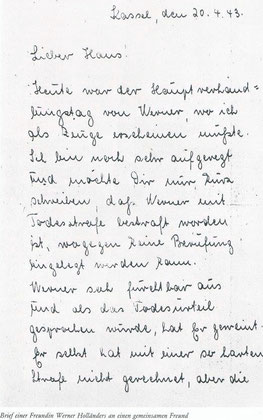 Kassel, den 20.4.43.
Lieber Hans!
Heute war der Hauptverhand=
lungstag von Werner, wo ich
als Zeuge erscheinen mußte.
Ich bin noch sehr aufgeregt
und möchte Dir nur kurz
schreiben, daß Werner mit
Todesstrafe bestraft worden
ist, wogegen keine Berufung
eingelegt werden kann.
Werner sah furchtbar aus
und als das Todesurteil
gesprochen wurde, hat Er geweint.
Er selbst hat mit einer so harten
Strafe nicht gerechnet, aber die
Brief einer Freundin Werner Holländers an einen gemeinsamen Freund